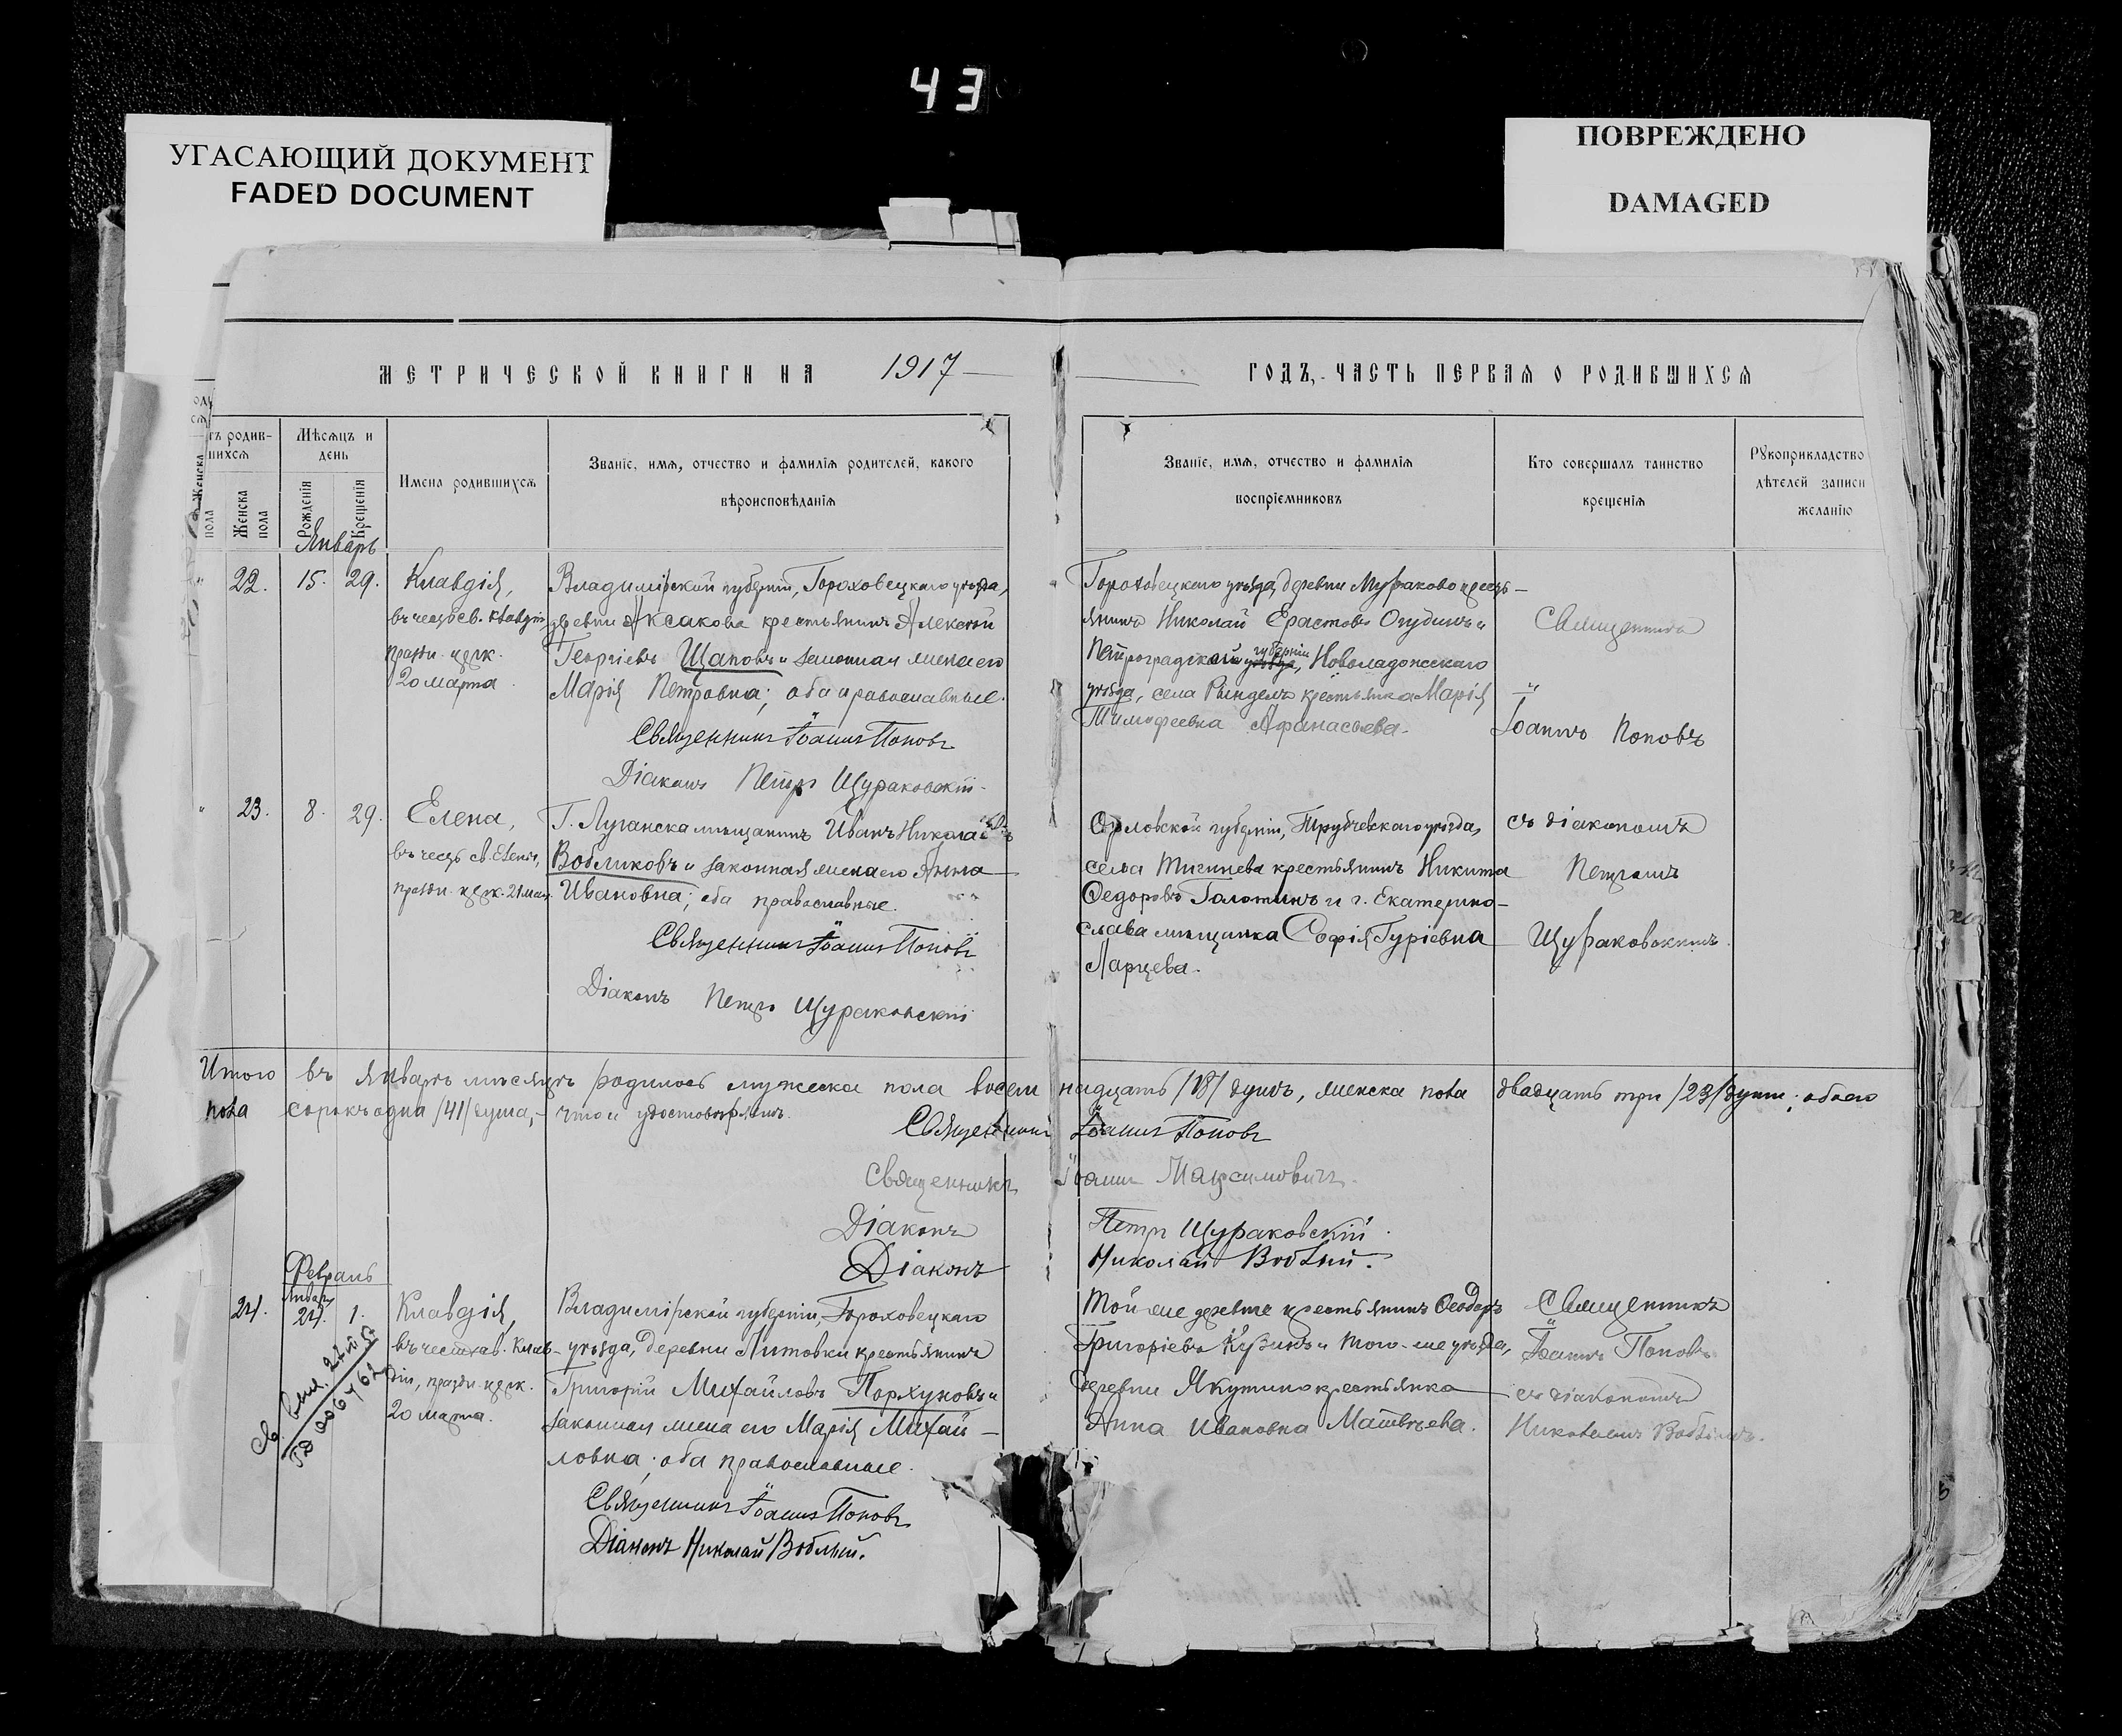 43
УГАСАЮЩИЙ ДОКУМЕНТ
FADED DOCUMENT
ПОВРЕЖДЕНО
DAMAGED
МЕТРИЧЕСКОЙ КНИГИ НА 1917 ГОДЪ, ЧАСТЬ ПЕРВАЯ О РОДИВШИХСЯ
тъ родив-
шихся
Женска
пола
Мѣсяцъ и
день
Рожденія
Крещенія
Имена родившихся
Званіе, имя, отчество и фамилія родителей, какого
вѣроисповѣданія
Званіе, имя, отчество и фамилія
воспріемниковъ
Кто совершалъ таинство
крещенія
Рукоприкладство
дѣтелей записи
желанію
Январь
22. 15. 29.
Клавдія,
въ честь св. Клавдіи
праздн. церк.
20 марта
Владимірской губерніи, Гороховецкаго уѣзда,
деревни Аксакова крестьянинъ Алексѣй
Георгіевъ Щаповъ и законная жена его
Марія Петровна; оба православные.
Священникъ Іоаннъ Поповъ
Діаконъ Петръ Щураковскій
Гороховецкаго уѣзда, деревни Мураково кресть-
янинъ Николай Ерастовъ Огудинъ и
Петроградской уѣзда губерніи, Новоладожскаго
уѣзда, села Рындель крестьянка Марія
Тимофеевна Афанасьева.
Священникъ
Іоаннъ Поповъ
23. 8. 29.
Елена,
въ честь св. Елены,
праздн. церк. 21 мая.
Г. Луганска мѣщанинъ Иванъ Николаевъ
Вобликовъ и законная жена его Анна
Ивановна; оба православные.
Священникъ Іоаннъ Поповъ
Діаконъ Петръ Щураковскій
Орловской губерніи, Трубчевскаго уѣзда,
села Тигинева крестьянинъ Никита
Федоровъ Голотинъ и г. Екатерино-
слава мѣщанка Софія Гуріевна
Ларцева.
съ діакономъ
Петромъ
Щураковскимъ.
Итого въ январѣ мѣсяцѣ родилось мужеска пола восемнадцать /18/ душъ, женска пола двадцать три /23/ души; обоего
пола сорокъ одна /41/ душа, - что и удостовѣряемъ.
Священникъ Іоаннъ Поповъ
Священникъ Іоаннъ Максимовичъ.
Діаконъ Петръ Щураковскій.
Діаконъ Николай Воблый.
Февраль
Январь
24. 24. 1.
Клавдія,
въ честь св. Клав-
діи, праздн. церк.
20 марта.
Владимірской губерніи, Гороховецкаго
уѣзда, деревни Литовки крестьянинъ
Григорій Михайловъ Порхуновъ и
законная жена его Марія Михай-
ловна; оба православные.
Священникъ Іоаннъ Поповъ
Діаконъ Николай Воблый.
Той же деревни крестьянинъ Феодоръ
Григоріевъ Кузинъ и того-же уѣзда,
деревни Якутино крестьянка
Анна Ивановна Матвѣева.
Священникъ
Іоаннъ Поповъ
съ діакономъ
Николаемъ Воблымъ.